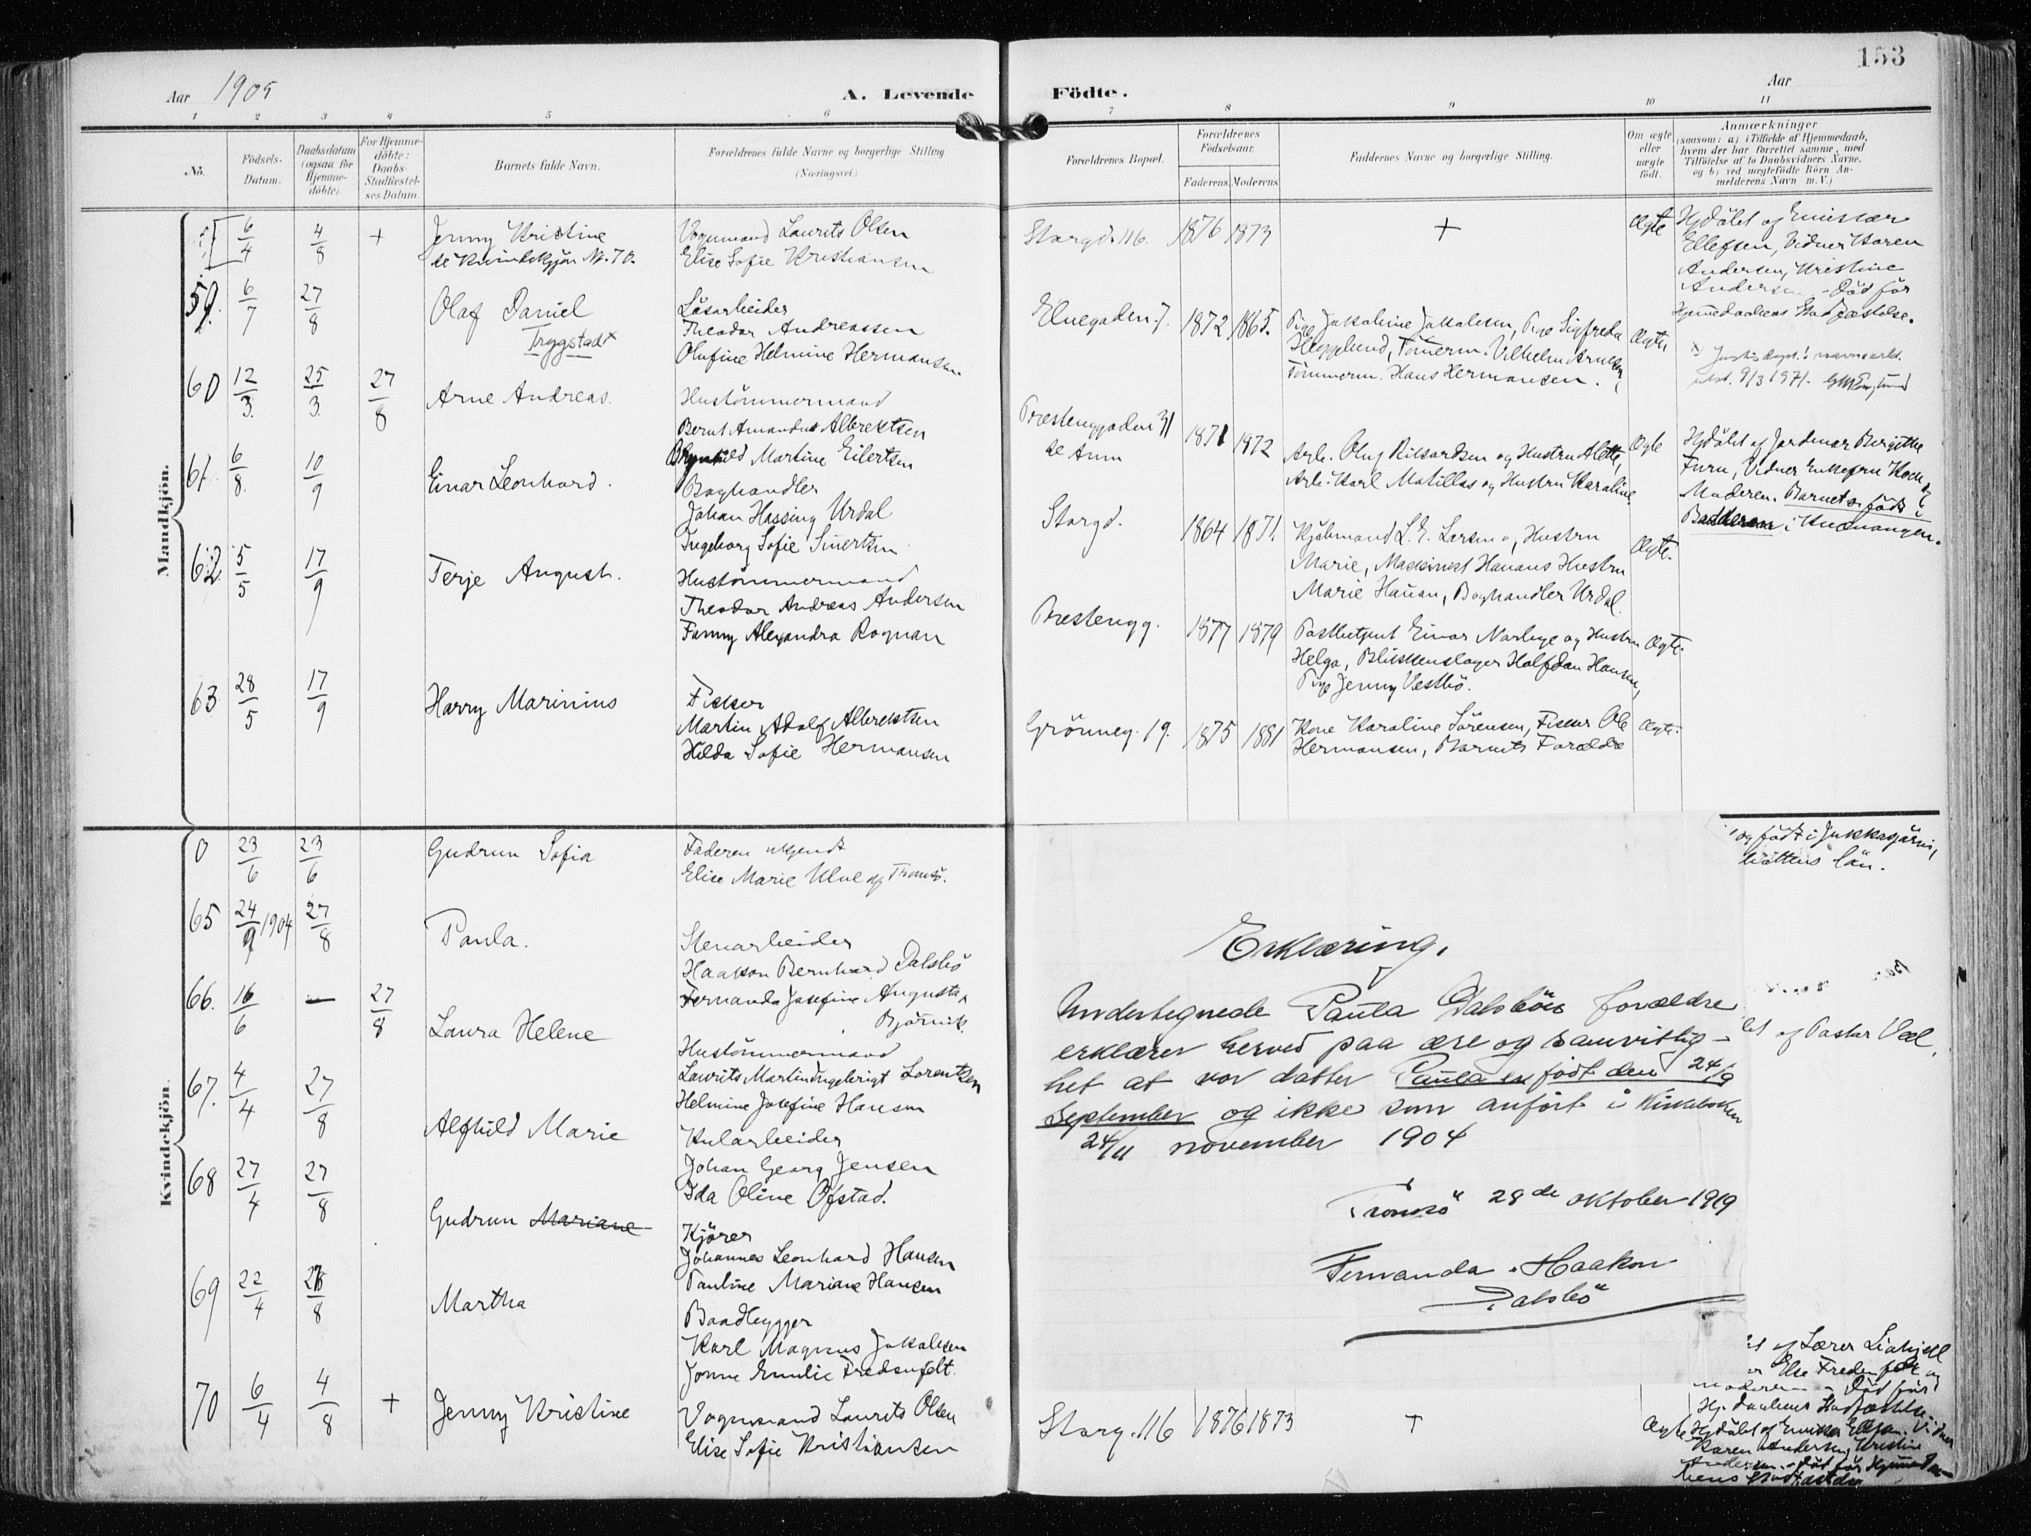 153
Aar 1905
A. Levende
Födte.
Aar
1 2 3 4 5 6 7 8 9 10 11
No.
Födsels-
Datum.
Daabsdatum
(ogsaa for
Hjemme-
döbte).
For Hjemme-
döbte:
Daabs-
Stadfæstel-
ses Datum.
Barnets fulde Navn.
Forældrenes fulde Navne og borgerlige Stilling
(Næringsvei.)
Forældrenes Bopæl.
Forældrenes
Födselsaar.
Faderens. Moderens.
Faddernes Navne og borgerlige Stilling.
Om ægte
eller
uægte
födt.
Anmærkninger
(saasom: a) i Tilfælde af Hjemmedaab,
hvem der har forrettet samme, med
Tilföielse af to Daabsvidners Navne,
og b) ved uægtefödte Börn An-
melderens Navn m. V.)
Mandkjön.
6/4 4/8 +
Jenny Kristine
se Kvindekjön No. 70.
Vognmand Laurits Olsen
Elise Sofie Kristiansen
Storgd. 116. 1876 1873 + Ægte
Hjdöbt af Emissær
Ellefsen, Vidner Karen
Andersen, Kristine
Andersen - Död för
Hjemmedaabens Stadfæstelse.
59. 6/7 27/8
Olaf Daniel
Trygstad x
Lösarbeider
Theodor Andreassen
Olufine Helmine Hermansen
Elvegaden 7. 1872 1865.
Pige Jakobine Jakobsen, Pige Sigfreda
Heggelund, Tömmerm. Vilhelm Arnesen,
Tömmerm. Hans Hermansen.
Ægte
x) Justisdept.s navneark.
9/3 1971.
60 12/3. 25/3. 27/8
Arne Andreas.
Hustömmermand
Bernt Amandus Albrektsen
Martine Eilertsen
Prestenggaden 31
1871 1872
Arb. Oluf Rikardsen og Hustru Alette,
Arb. Karl Matillas og Hustru Karoline
Ægte
Hjdöbt af Jordemor Bergitte
Furu, Vidner Enkefru Koch og
Moderen. Barnet er födt i
Badderen i Kvænangen.
61. 6/8. 10/9
Einar Leonhard.
Boghandler
Johan Hassing Urdal
Ingeborg Sofie Sivertsen
Storgd. 1864 1871.
Kjöbmand L. E. Larsen og Hustru
Marie, Maskinist Hanans Hustru
Marie Hanan, Boghandler Urdal.
Ægte.
62. 5/5 17/9
Terje August.
Hustömmermand
Theodor Andreas Andersen
Fanny Alexandra Rognan
Prestengg. 1877 1879
Postbetjent Einar Norbye og Hustru
Helga, Blikkenslager Halfdan Hansen,
Pige Jenny Vestbö.
Ægte.
63 28/5 17/9
Harry Marinius
Fisker
Martin Adolf Albrektsen
Hilda Sofie Hermansen
Grönneg. 19. 1875 1881
Kone Karoline Sörensen, Fisker Ole
Hermansen, Barnets Forældre
Ægte.
Kvindekjön.
0 23/6 23/6
Gudrun Sofia
Faderen ukjendt
Elise Marie Ulve af Tromsö.
og födt i Jukkasjärvi,
bottens län.
65 24/9 1904 27/8
Paula.
Stenarbeider
Haakon Bernhard Dalsbö
Fernanda Josefine Augusta
Bjørnvik
66. 16/6 — 27/8
Laura Helene
Hustömmermand
Laurits Martin Ingebrigt Lorentzen
Helmine Josefine Hansen
af Pastor Vol.
67. 4/4 27/8
Alfhild Marie
Kularbeider
Johan Georg Jensen
Ida Oline Ofstad.
68 27/4 27/8
Gudrun Mariane
Kjörer
Johannes Leonhard Hansen
Pauline Mariane Hansen
69 22/4 27/8
Martha
Baadbygger
Karl Magnus Jakobsen
Jonne Emilie Fredenfelt.
af Lærer Liakjell
Else Fredenfelt og
Moderen - Död för
Hj. daabens Stadfæstelse
70 6/4 4/8 +
Jenny Kristine
Vognmand Laurits Olsen
Elise Sofie Kristiansen
Storg. 116 1876 1873 + Ægte
Hjdöbt af Emissær Ellefsen. Vidner
Karen Andersen, Kristine
Andersen. - Död för Hjemmedaa-
bens Stadfæstelse
Erklæring.
Undertegnede Paula Dalsböes forældre
erklærer herved paa ære og samvittig-
het at vor datter Paula er født den 24/9
September og ikke som anført i Kirkeboken
24/11 november 1904
Tromsö 28de oktober 1919
Fernanda . Haakon
Dalsbö